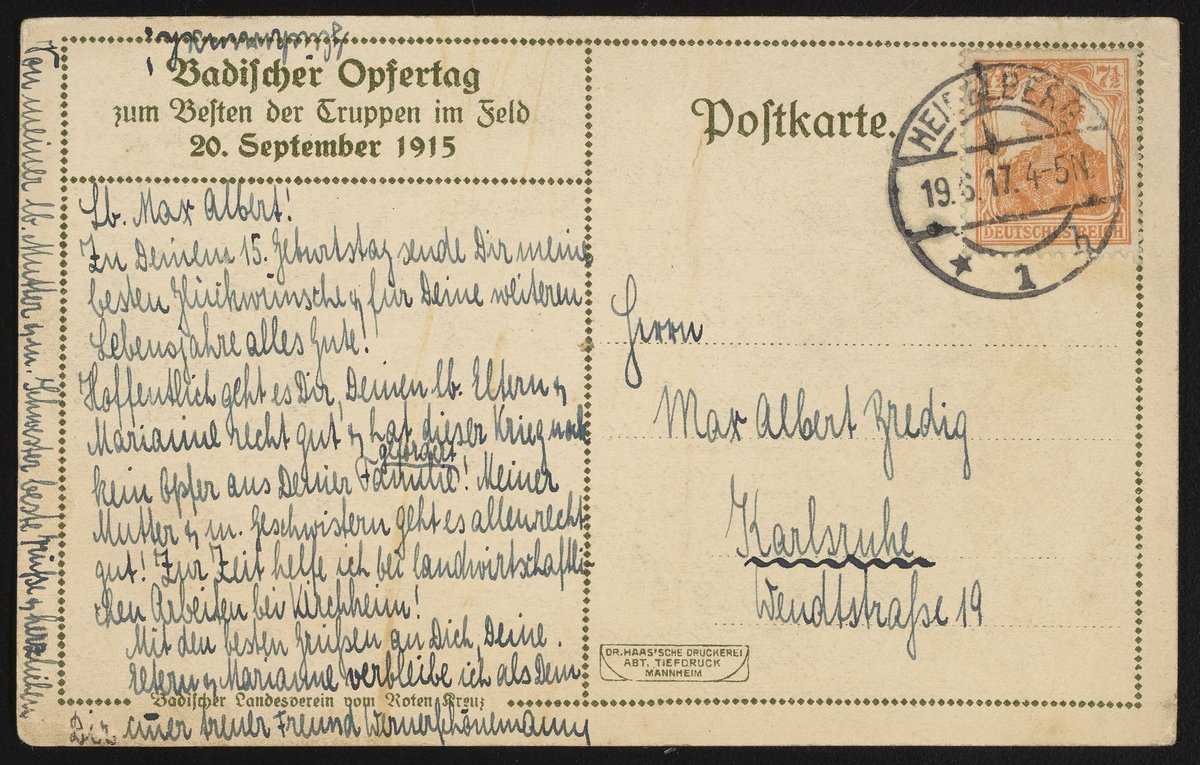 Badischer Opfertag
zum Besten der Truppen im Feld
20. September 1915
Postkarte.
HEIDELBERG
19.6.17. 4-5N.
* 1 h
7½
DEUTSCHES REICH
Lb. Max Albert!
Zu Deinem 15. Geburtstag sende Dir meine
besten Glückwünsche & für Deine weiteren
Lebensjahre alles Gute!
Hoffentlich geht es Dir, Deinen lb. Eltern &
Marianne recht gut & hat dieser Krieg noch
gefordert
kein Opfer aus Deiner Familie! Meiner
Mutter & m. Geschwistern geht es allen recht
gut! Zur Zeit helfe ich bei landwirtschaftli-
chen Arbeiten bei Kirchheim!
Mit den besten Grüßen an Dich, Deine
Eltern & Marianne verbleibe ich als Dein
Badischer Landesverein vom Roten Kreuz
Dir treuer Freund Werner Schönemann
Von meiner lb. Mutter & m. Schwester beste Grüße &
Herrn
Max Albert Bredig
Karlsruhe
Wendtstraße 19
DR. HAAS'SCHE DRUCKEREI
ABT. TIEFDRUCK
MANNHEIM